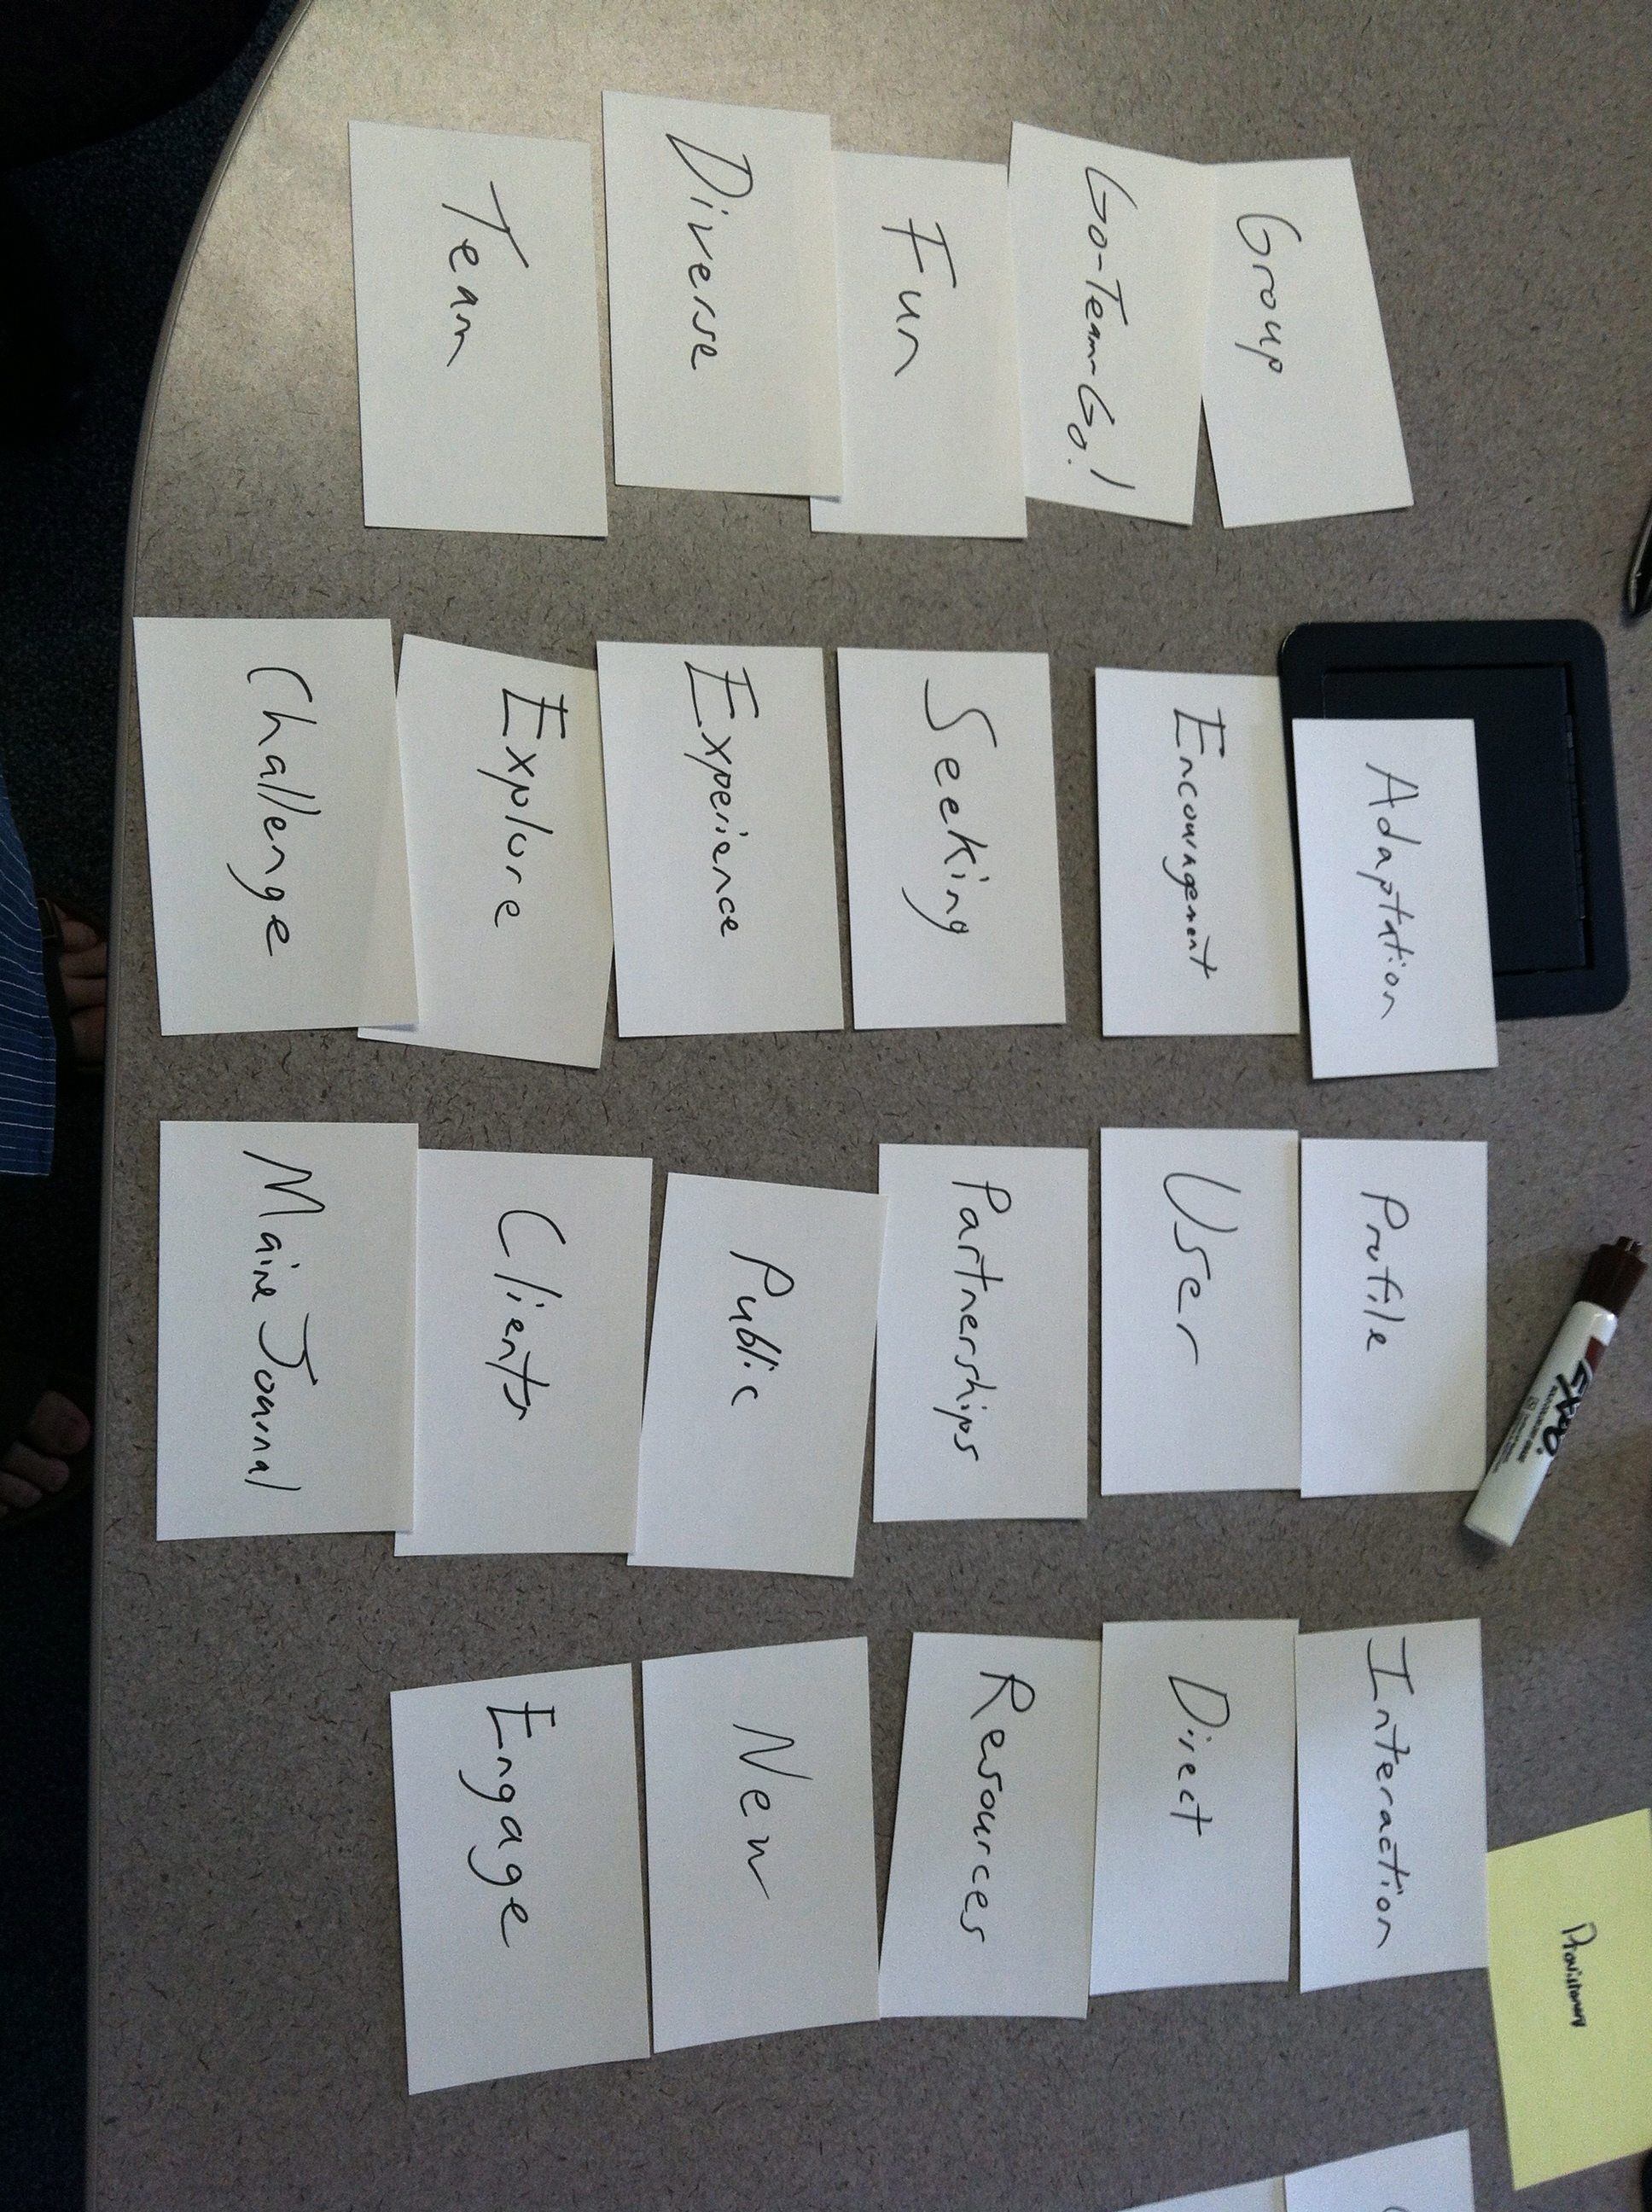 Group
Go-Team-Go!
Fun
Diverse
Team
Adaptation
Encouragement
Seeking
Experience
Explore
Challenge
Profile
User
Partnerships
Public
Clients
Maine Journal
Interaction
Direct
Resources
New
Engage
EXPO